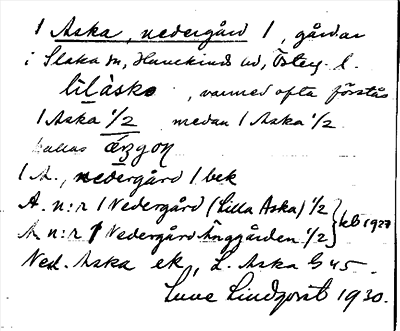 1 Aska, nedergård 1, gårdar
i Slaka sn, Hanekinds hd, Österg. l.
lilåske, varmed ofta förstås
1 Aska 1/2 medan 1 Aska 1/2
kallas ängon
1 A., nedergård 1 bek
A. n:r 1 Nedergård (Lilla Aska) 1/2
A. n:r 1 Nedergård Änggården 1/2 } jb 1927
Ned. Aska ek, L. Aska G 45.
Sune Lindqvist 1930.